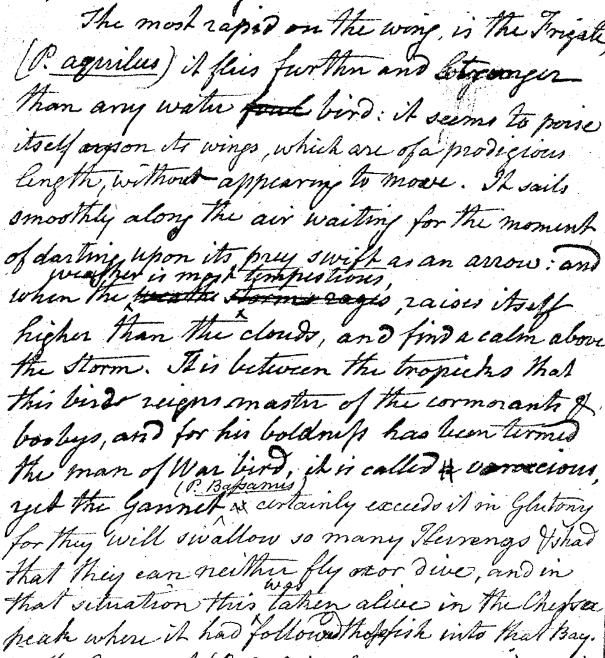 The most rapid on the wing, is the Frigate,
(P. aquilus) it flies further and stronger
than any water foul bird: it seems to poise
itself upon its wings, which are of a prodigious
length, without appearing to move. It sails
smoothly along the air waiting for the moment
of darting upon its prey swift as an arrow: and
weather is most tempestious,
when the weathe storms rages, raises itself
higher than the clouds, and find a calm above
the storm. It is between the tropicks that
this bird reigns master of the cormorants &
boobys, and for his boldness has been termed
the man of War bird, it is called a voracious,
(P. Bassanus)
yet the Gannet certainly exceeds it in Glutony
for they will swallow so many Herrengs & shad
that they can neither fly nor dive, and in
was
that situation this taken alive in the Chesea
peak where it had followed those fish into that Bay.